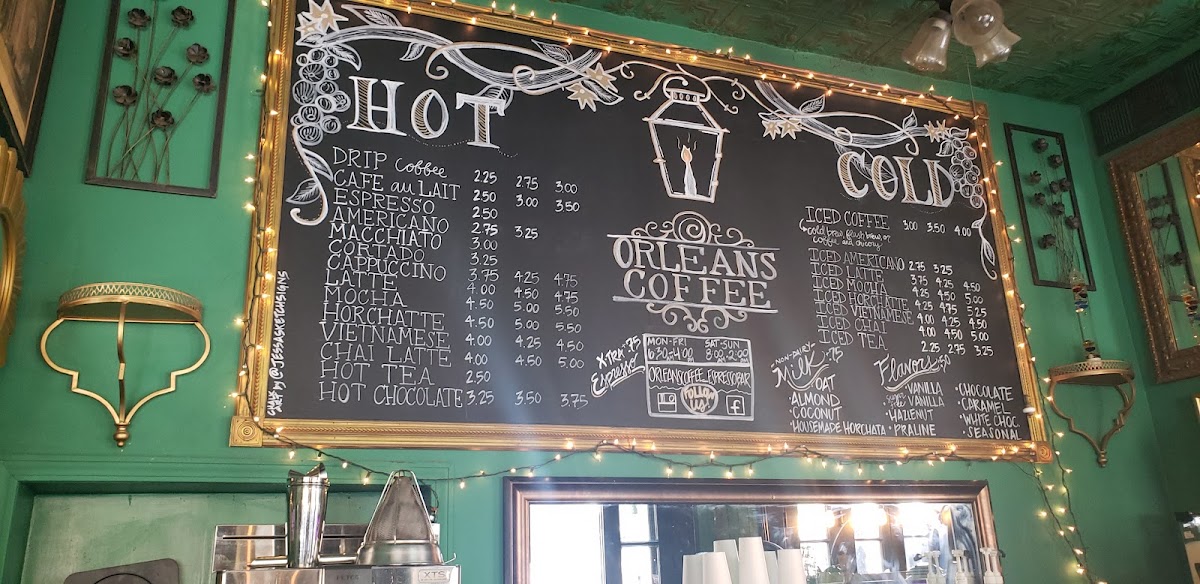 HOT
DRIP coffee 2.25 2.75 3.00
CAFE au LAIT 2.50 3.00 3.50
ESPRESSO 2.50
AMERICANO 2.75 3.25
MACCHIATO 3.00
CORTADO 3.25
CAPPUCCINO 3.75 4.25 4.75
LATTE 4.00 4.50 4.75
MOCHA 4.50 5.00 5.50
HORCHATTE 4.50 5.00 5.50
VIETNAMESE 4.00 4.25 4.50
CHAI LATTE 4.00 4.50 5.00
HOT TEA 2.50
HOT CHOCOLATE 3.25 3.50 3.75
CHALK ART by @JESSASKETCHSIGNS
ORLEANS
COFFEE
XTRA .75
Espresso
MON-FRI
6:30-4:00
SAT-SUN
8:00-2:00
ORLEANSCOFFEE_ESPRESSOBAR
FOLLOW
US
f
COLD
ICED COFFEE 3.00 3.50 4.00
cold brew, flash brew, or
coffee and chicory
ICED AMERICANO 2.75 3.25
ICED LATTE 3.75 4.25 4.50
ICED MOCHA 4.25 4.50 5.00
ICED HORCHATTE 4.25 4.75 5.25
ICED VIETNAMESE 4.00 4.25 4.50
ICED CHAI 4.00 4.50 5.00
ICED TEA 2.25 2.75 3.25
NON-DAIRY
Milk .75
•OAT
•ALMOND
•COCONUT
•HOUSEMADE HORCHATA
Flavors .50
•VANILLA
VANILLA
•HAZLENUT
•PRALINE
•CHOCOLATE
•CARAMEL
•WHITE CHOC.
•SEASONAL
XTS